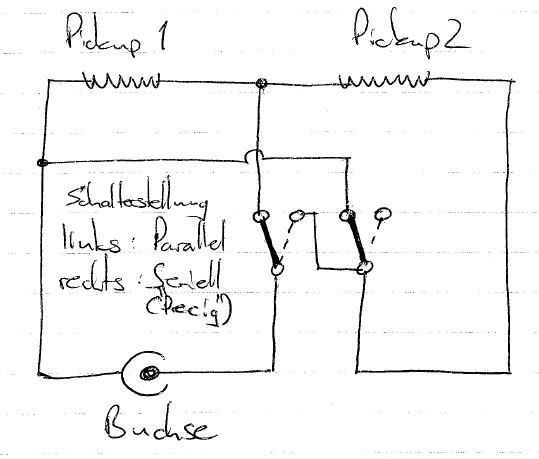 Pickup 1
Pickup 2
Schalterstellung
links: Parallel
rechts: Seriell
("Dreckig")
Buchse